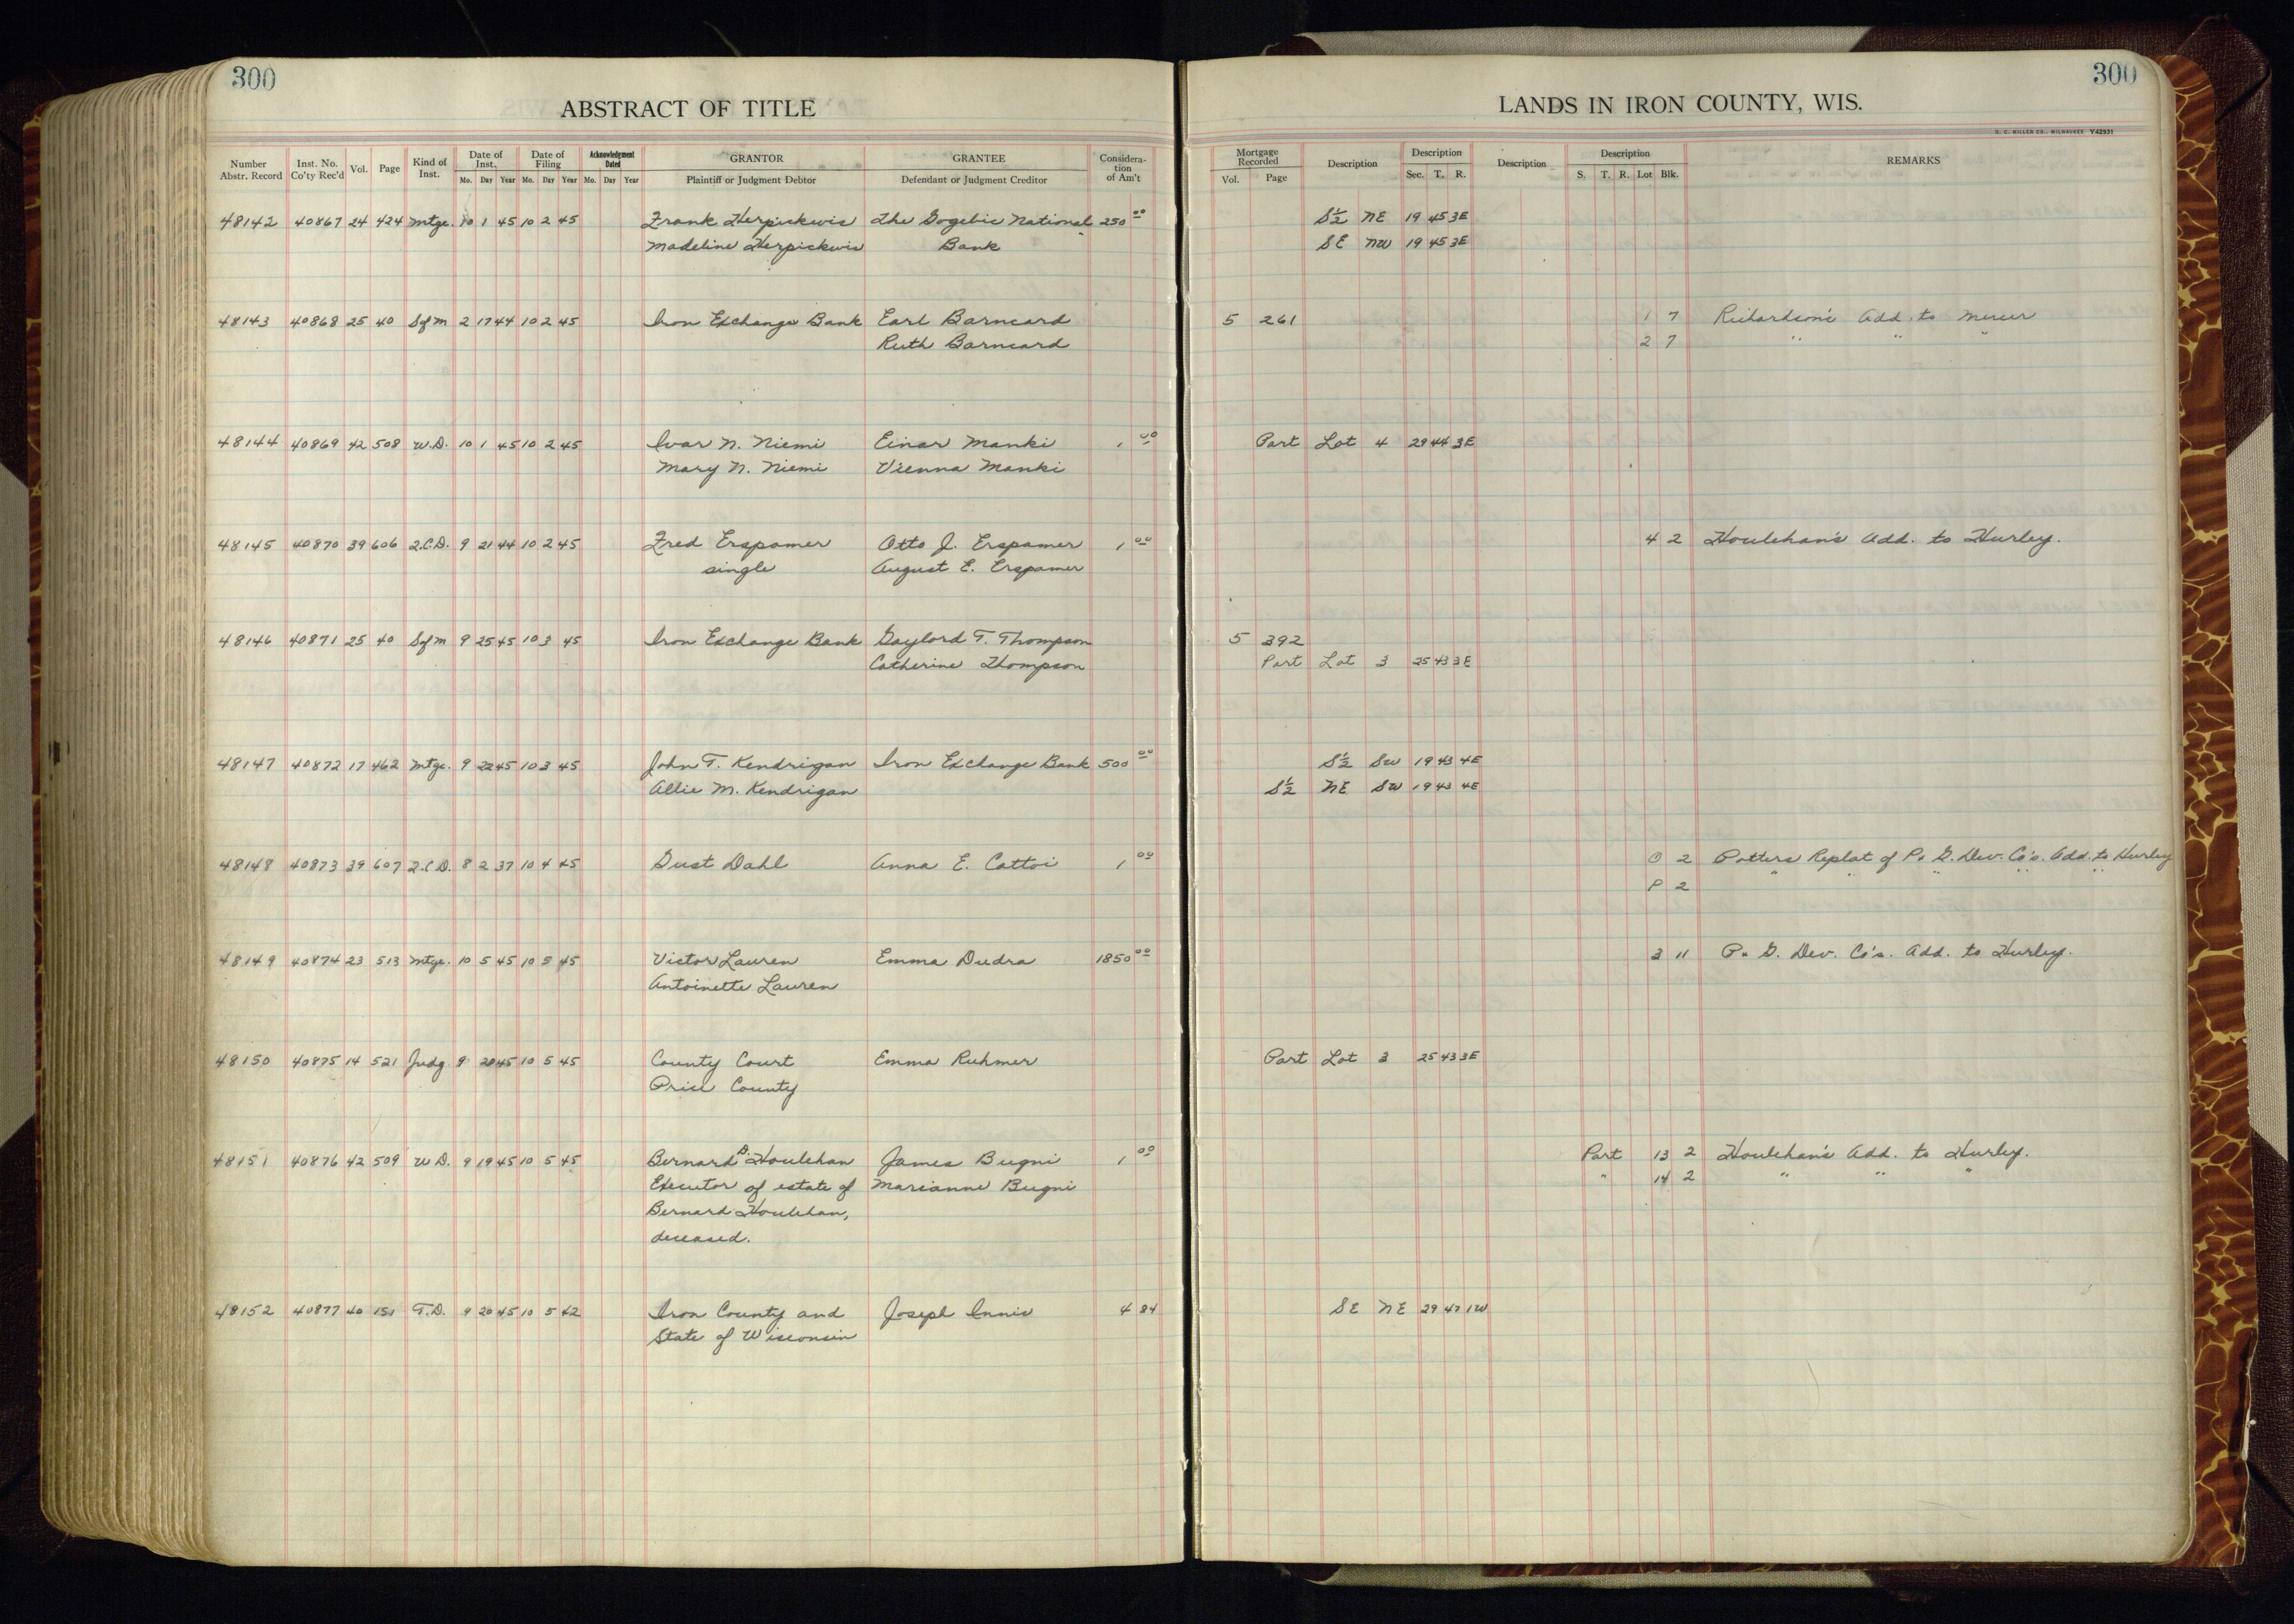 300
ABSTRACT OF TITLE
Number Abstr. Record Inst. No. Co'ty Rec'd Vol. Page Kind of Inst. Date of Inst. Mo. Day Year Date of Filing Mo. Day Year Acknowledgment Dated Mo. Day Year GRANTOR Plaintiff or Judgment Debtor GRANTEE Defendant or Judgment Creditor Considera-tion of Am't
300
LANDS IN IRON COUNTY, WIS.
H. C. MILLER CO., MILWAUKEE Y42931
Mortgage Recorded Vol. Page Description Description Sec. T. R. Description Description S. T. R. Lot Blk. REMARKS
48142 40867 24 424 Mtge. 10 1 45 10 2 45 Frank Herpickwis The Gogebic National 250 00 S½ NE 19 45 3E
Madeline Herpickwis Bank SE NW 19 45 3E
48143 40868 25 40 Sof M 2 17 44 10 2 45 Iron Exchange Bank Earl Barneard 5 261 1 7 Richardson's Add. to Mercer
Ruth Barneard 2 7 " " "
48144 40869 42 508 W.D. 10 1 45 10 2 45 Ivar N. Niemi Einar Manki 1 00 Part Lot 4 29 44 3E
Mary N. Niemi Vienna Manki
48145 40870 39 606 Q.C.D. 9 21 44 10 2 45 Fred Erspamer Otto J. Erspamer 1 00 4 2 Houlehan's Add. to Hurley.
single August E. Erspamer
48146 40871 25 40 Sof M 9 25 45 10 3 45 Iron Exchange Bank Gaylord T. Thompson 5 392
Catherine Thompson Part Lot 3 25 43 3E
48147 40872 17 462 Mtge. 9 22 45 10 3 45 John T. Kendrigan Iron Exchange Bank 500 00 S½ SW 19 43 4E
Allie M. Kendrigan S½ NE SW 19 43 4E
48148 40873 39 607 Q.C.D. 8 2 37 10 4 45 Gust Dahl Anna E. Cattoi 1 00 O 2 Potters Replat of P. G. Dev. Co's. Add. to Hurley
P 2 " " " " "
48149 40874 23 513 Mtge. 10 5 45 10 5 45 Victor Lauren Emma Dudra 1850 00 3 11 P. G. Dev. Co's. Add. to Hurley.
Antoinette Lauren
48150 40875 14 521 Judg 9 20 45 10 5 45 County Court Emma Ruhmer Part Lot 3 25 43 3E
Price County
48151 40876 42 509 W.D. 9 19 45 10 5 45 Bernard D. Houlehan James Bugni 1 00 Part 13 2 Houlehan's Add. to Hurley.
Executor of estate of Marianne Bugni " 14 2 " " "
Bernard Houlehan,
deceased.
48152 40877 40 151 T.D. 9 20 45 10 5 42 Iron County and Joseph Innis 4 84 SE NE 29 47 1W
State of Wisconsin